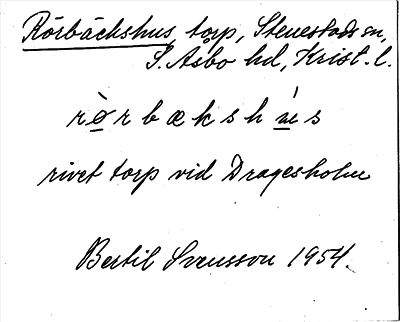 Rörbäckshus, torp, Stenestads sn,
S. Åsbo hd, Krist. l.
rö̀rbækshú̱s
rivet torp vid Dragesholm
Bertil Svensson 1954.